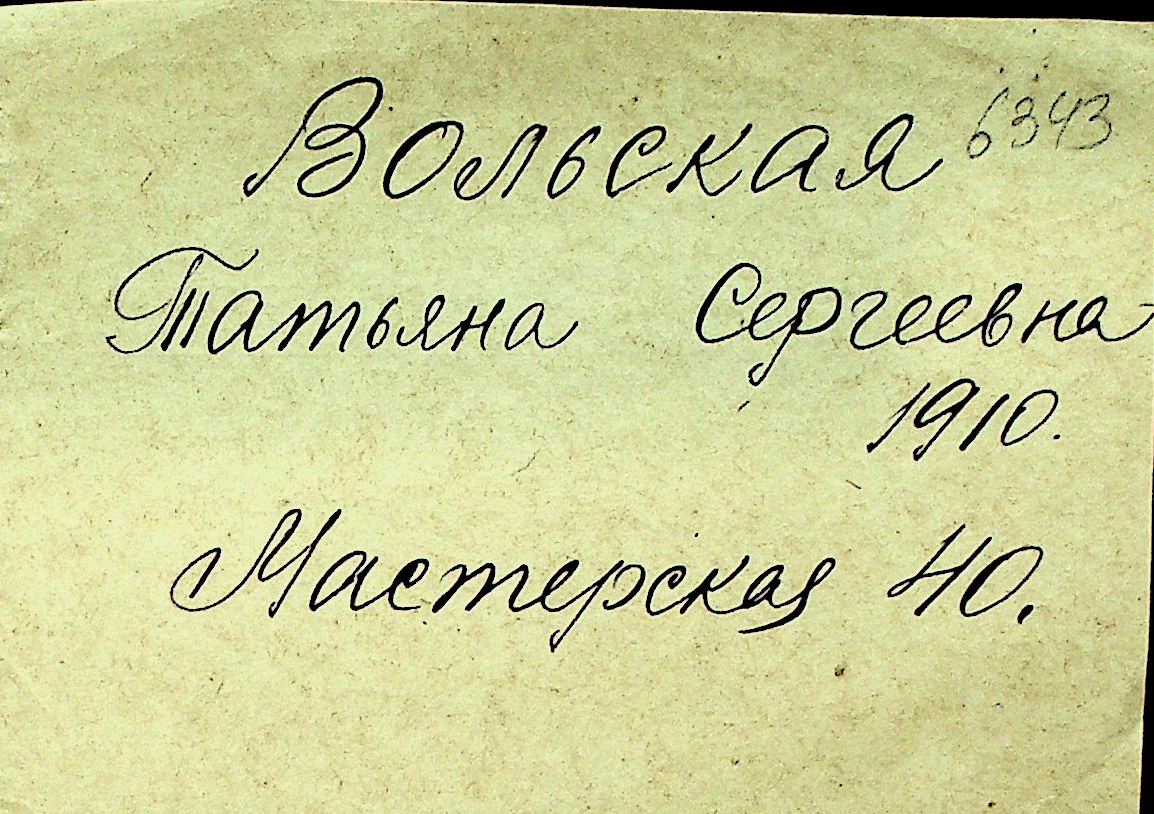 Вольская 6343
Татьяна Сергеевна
1910.
Мастерская 40.